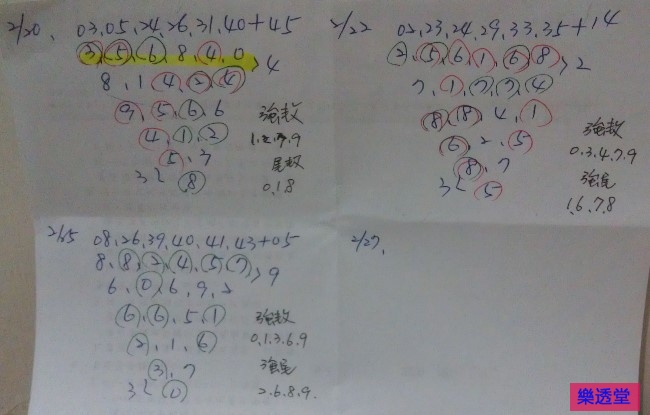 2/20、 03,05,24,26,31,40+45
3、5、6、8、4、0 > 4
8、1、4、2、4
9、5、6、6
4、1、2
5、7
3 < 8
強数
尾数
0.1.8
2/22 02,23,24,29,33,35+14
2、5、6、1、6、8 > 2
7、1、7、7、4
8、8、4、1
6、2、5
8、7
3 < 5
強数
0.3.4.7.9
強尾
1.6.7.8
2/25 08,26,39,40,41,43+05
8、8、2、4、5、7 > 9
6、0、6、9、2
6、6、5、1
2、1、6
3、7
3 < 0
強数
0.1.3.6.9
強尾
2.6.8.9.
2/27、
樂透堂